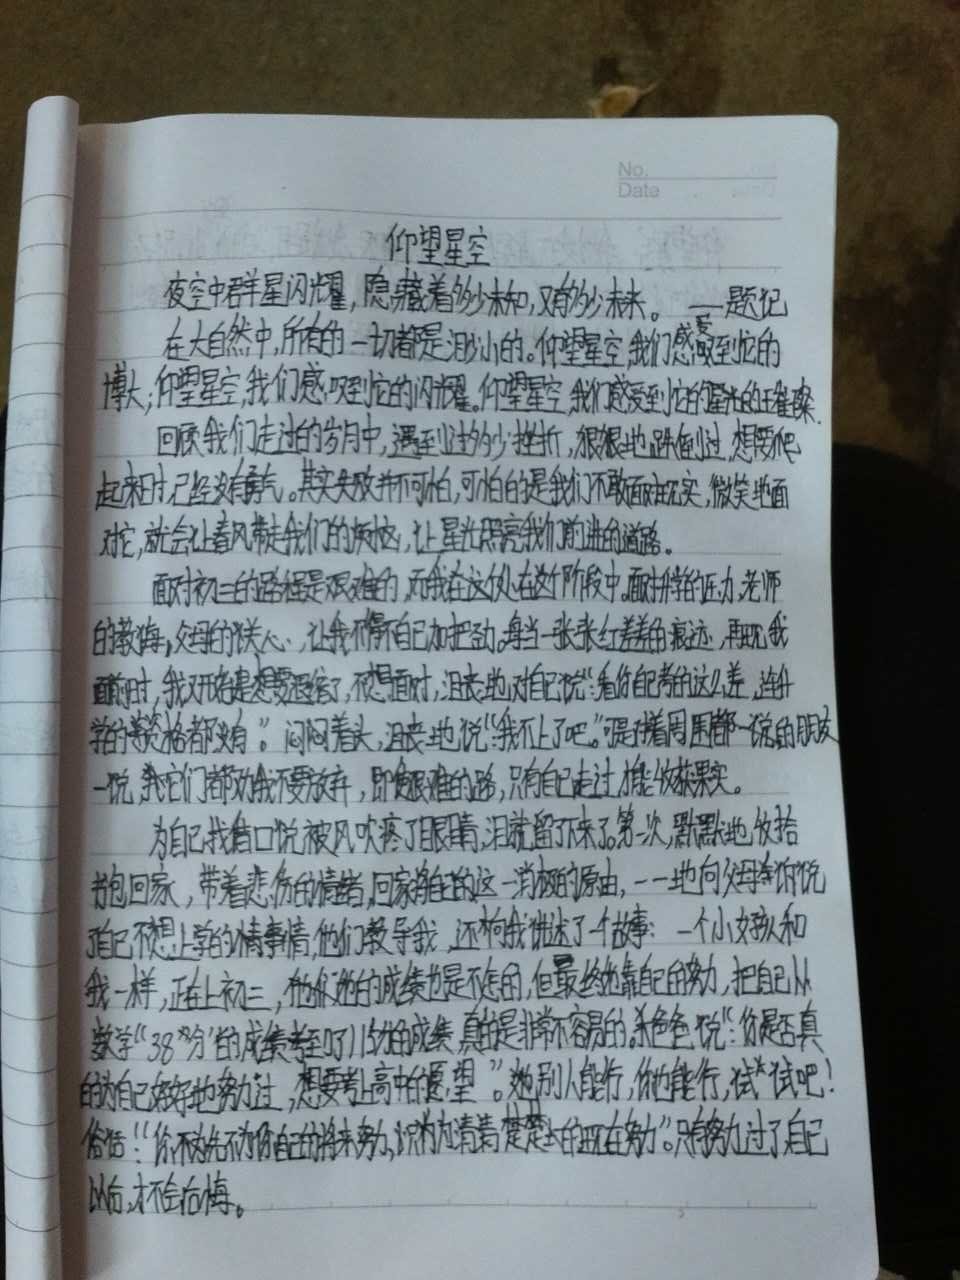 No.
Date
仰望星空
夜空中群星闪耀，隐藏着多少未知，又有多少未来。 ——题记
在大自然中，所有的一切都是渺小的。仰望星空，我们感受到它的
博大；仰望星空，我们感叹到它的闪耀。仰望星空，我们感受到它的曙光的璀璨.
回顾我们走过的岁月中，遇到过多少挫折，狠狠地跌倒过，想要爬
起来时，已经没有勇气。其实失败并不可怕，可怕的是我们不敢面对现实，微笑地面
对它，就会让春风带走我们的烦恼，让星光照亮我们前进的道路。
面对初三的路程是艰难的，而我在这处在这个阶段中。面对升学的压力，老师
的教诲，父母的关心，让我不得不自己加把劲。每当一张张红差差的痕迹，再现我
面前时，我又开始是想要退缩了，不想面对，沮丧地对自己说“：看你自己考的这么差，连升
学的资格都没有”。闷闷着头，沮丧地说“：我不上了吧。”可是对着周围都一说的朋友
一说，它们都劝我不要放弃，即使艰难的路，只有自己走过，才能收获果实。
为自己找借口说被风吹疼了眼睛，泪就留下来了。第一次，默默地收拾
书包回家，带着悲伤的情绪，回家将自己的这一消极的原由，一一地向父母诉说
了自己不想上学的事情，他们教导我，还向我讲述了一个故事：一个小女孩人和
我一样，正在上初三，她的成绩也是不怎的，但最终她靠自己的努力，把自己从
数学“38分”的成绩考到了115分的成绩，真的是非常不容易的。爸爸说“：你是否真
的为自己好好地努力过，想要考上高中的愿望”。她别人能行，你也能行，试一试吧！
俗话“：你不为先不为你自己的将来努力，识为为清清楚楚的现在努力”。只有努力过了自己
以后，才不会后悔。